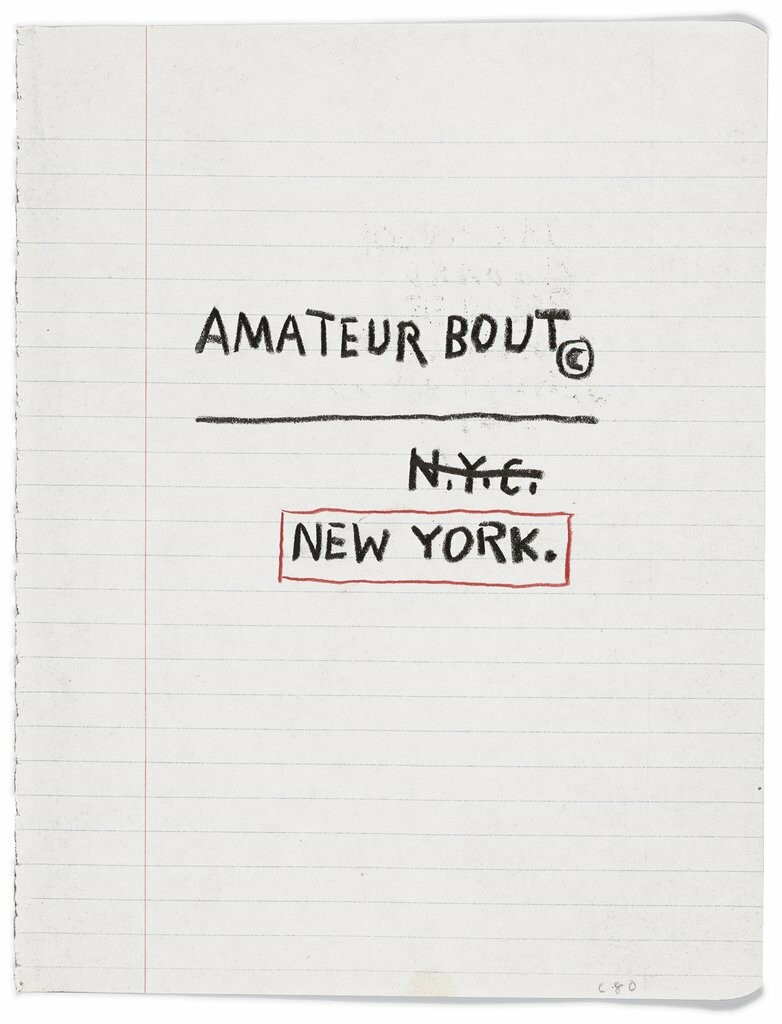 AMATEUR BOUT©
N.Y.C.
NEW YORK.